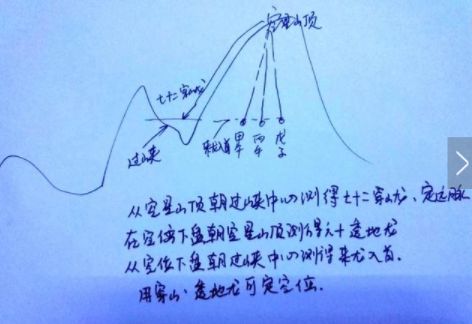 穴星山顶
七十二穿山龙
过峡
戊子
从穴星山顶朝过峡中心测得七十二穿山龙、定远脉
在穴位下盘朝穴星山顶测得六十透地龙
从穴位下盘朝过峡中心测得来龙入首.
用穿山、透地龙可定穴位.